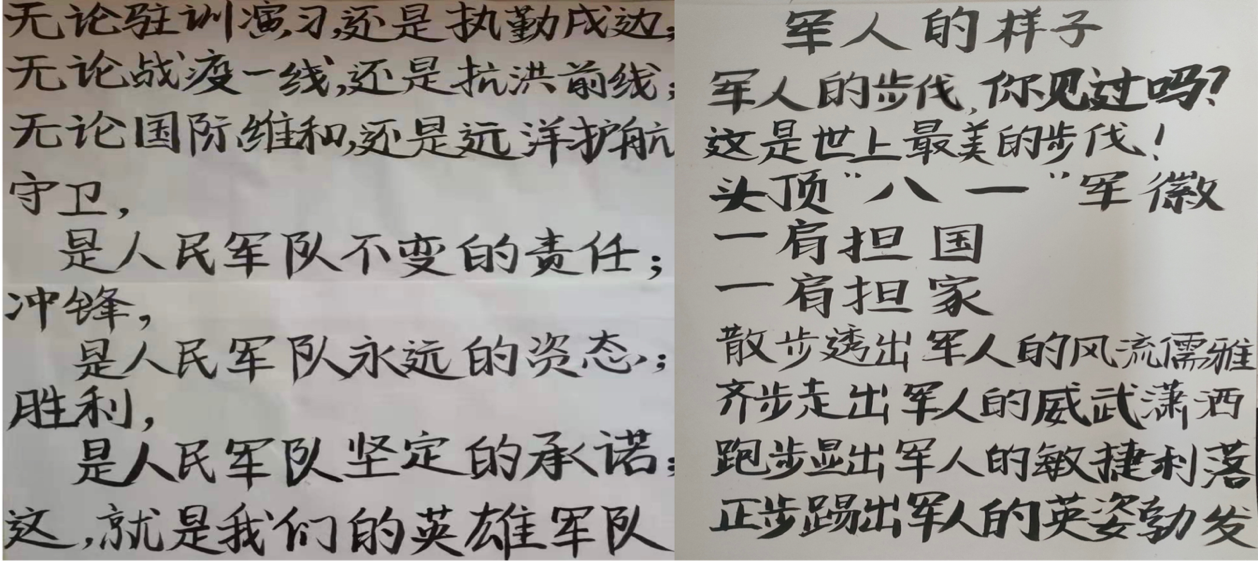 无论驻训演习,还是执勤戍边;
无论战疫一线,还是抗洪前线;
无论国防维和,还是远洋护航
守卫,
是人民军队不变的责任;
冲锋,
是人民军队永远的姿态;
胜利,
是人民军队坚定的承诺;
这,就是我们的英雄军队
军人的样子
军人的步伐,你见过吗?
这是世上最美的步伐!
头顶"八一"军徽
一肩担国
一肩担家
散步透出军人的风流儒雅
齐步走出军人的威武潇洒
跑步显出军人的敏捷利落
正步踢出军人的英姿勃发